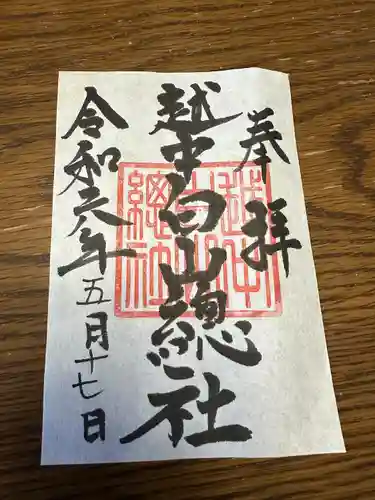 奉拝
越中白山總社
越中白山總社
令和六年五月十七日